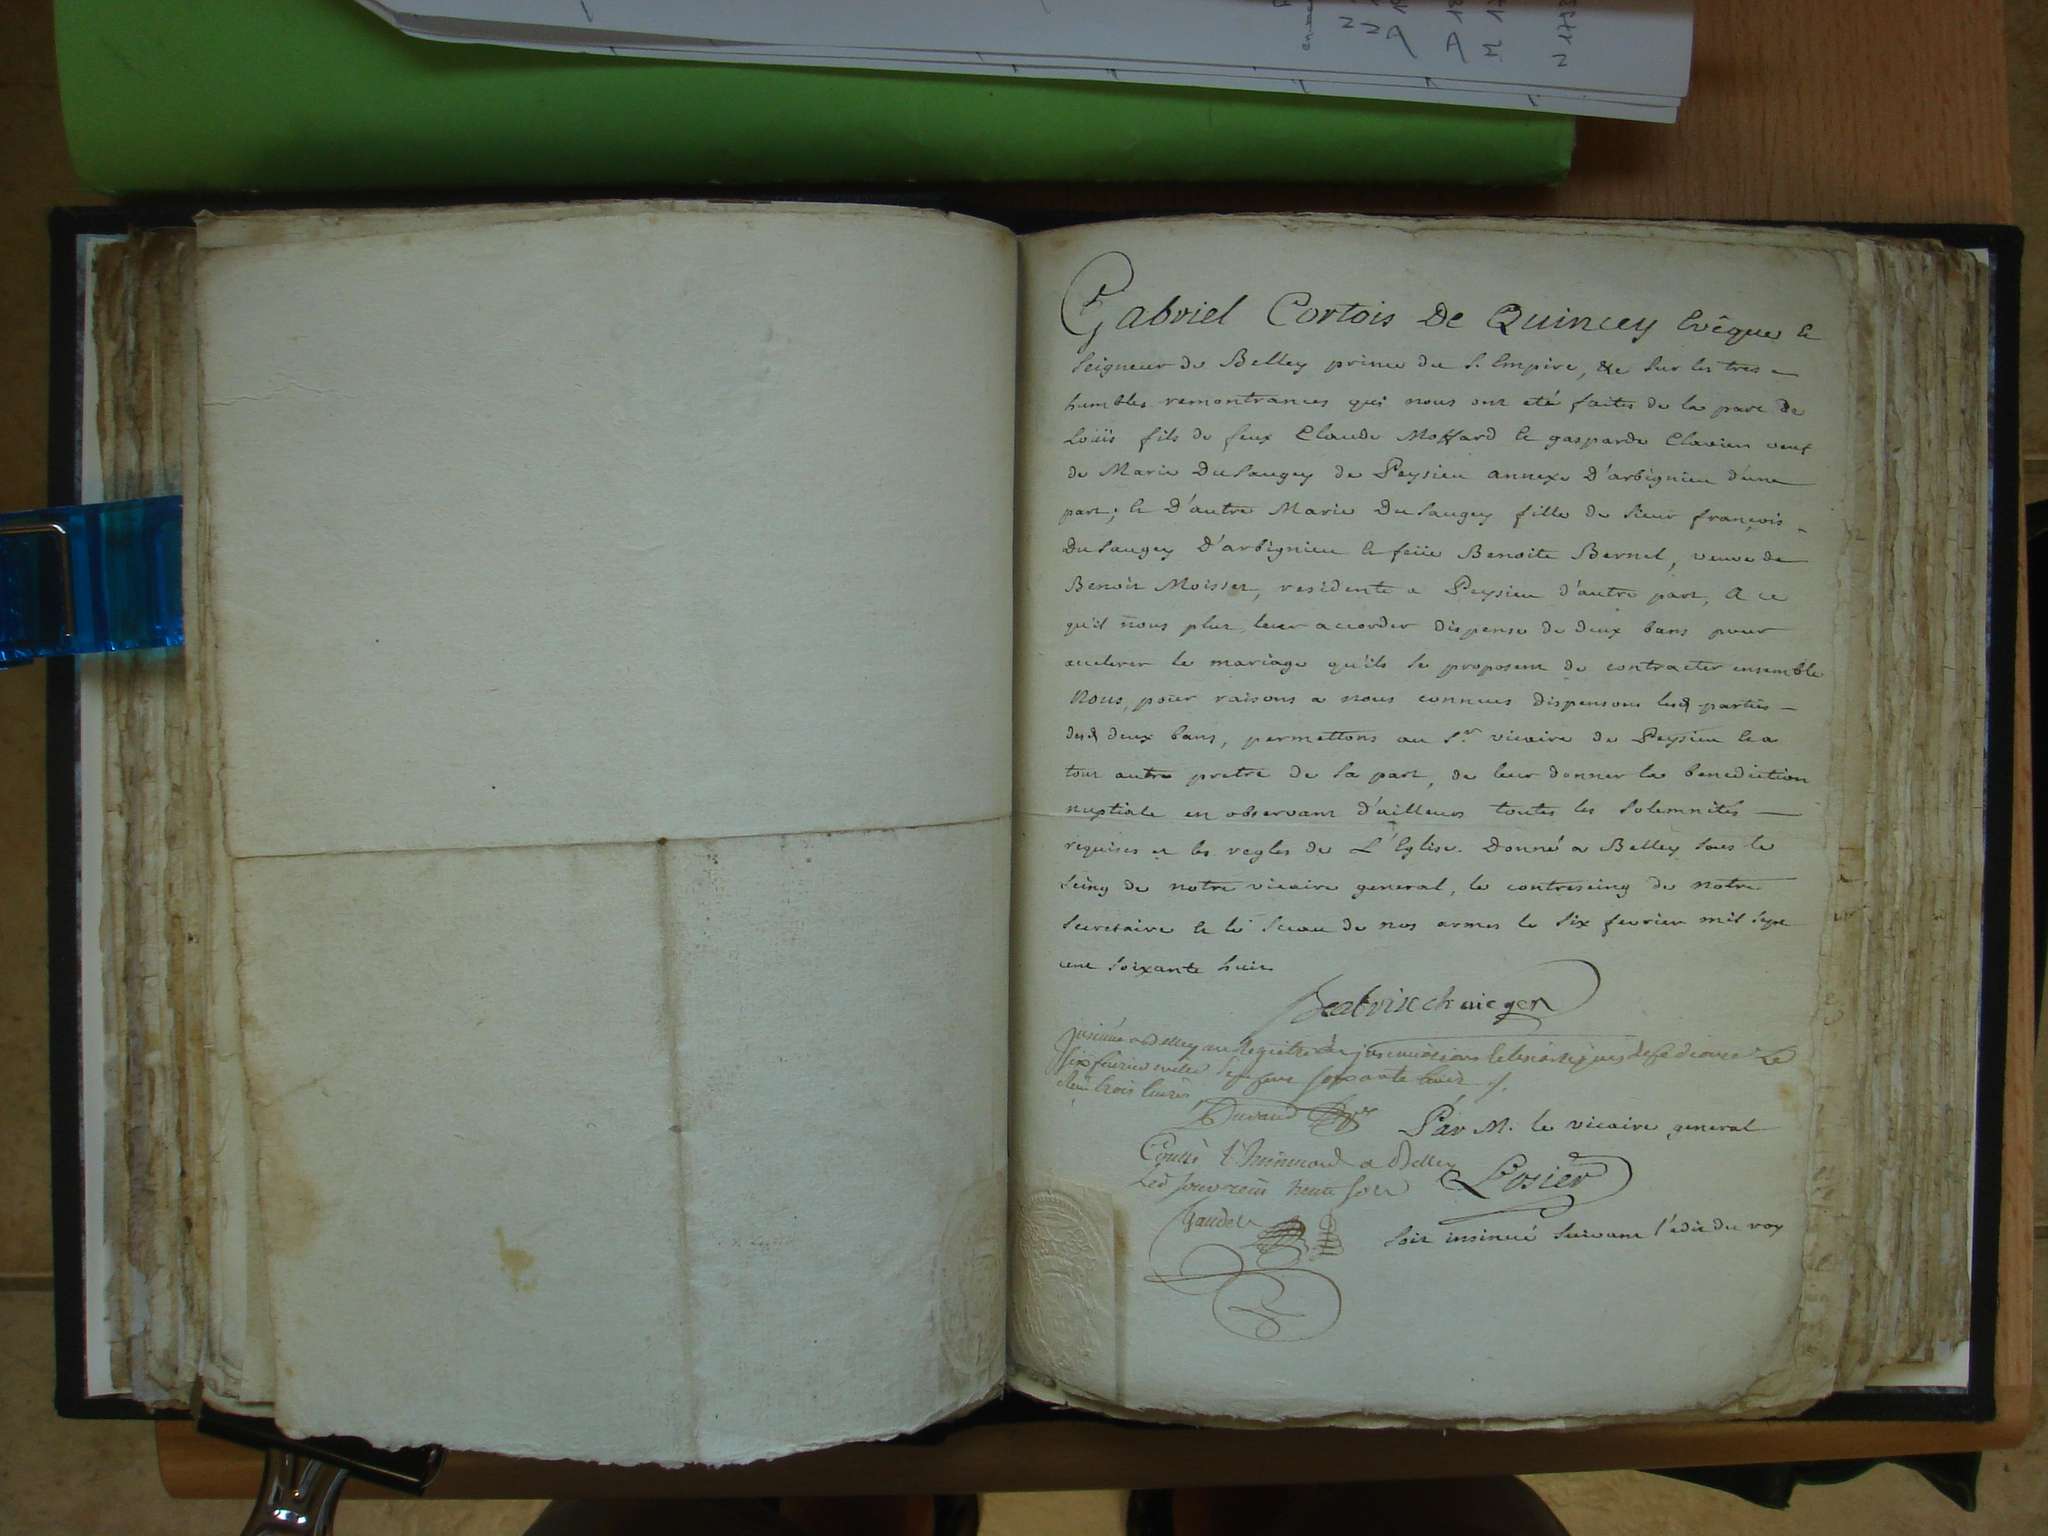 Gabriel Cortois De Quincey Evêque et
Seigneur de Belley prince du S. Empire, &c sur les tres
humbles remontrances qui nous ont eté faites de la part de
Loüis fils de feux Claude Moffard et gasparde Clavien veuf
de Marie DuSaugey de Peysieu annexe D'arbignieu d'une
part; et D'autre Marie DuSaugey fille de sieur françois
DuSaugey D'arbignieu et feüe Benoite Bernet, veuve de
Benoit Moisset, residente a Peysieu d'autre part, A ce
qu'il nous plut leur accorder dispense de deux bans pour
accelerer le mariage qu'ils se proposent de contracter ensemble
Nous, pour raisons a nous connues dispensons lesd parties
desd deux bans, permettons au Sr. vicaire de Peysieu et a
tout autre pretre de sa part, de leur donner la benediction
nuptiale en observant d'ailleurs toutes les solemnités
requises et les regles de L'Eglise. Donné a Belley sous le
seing de notre vicaire general, le contreseing de notre
secretaire et le sceau de nos armes le six fevrier mil sept
cent soixante huit
vic gen
insinué a Belley au Registre des insinuations Ecclesiastiques de ce diocese Le
six fevrier mille sept cent soixante huit
trois livres
Durand
Par M. le vicaire general
a Belley
Losier
Gaudet
soit insinué suivant l'edit du roy